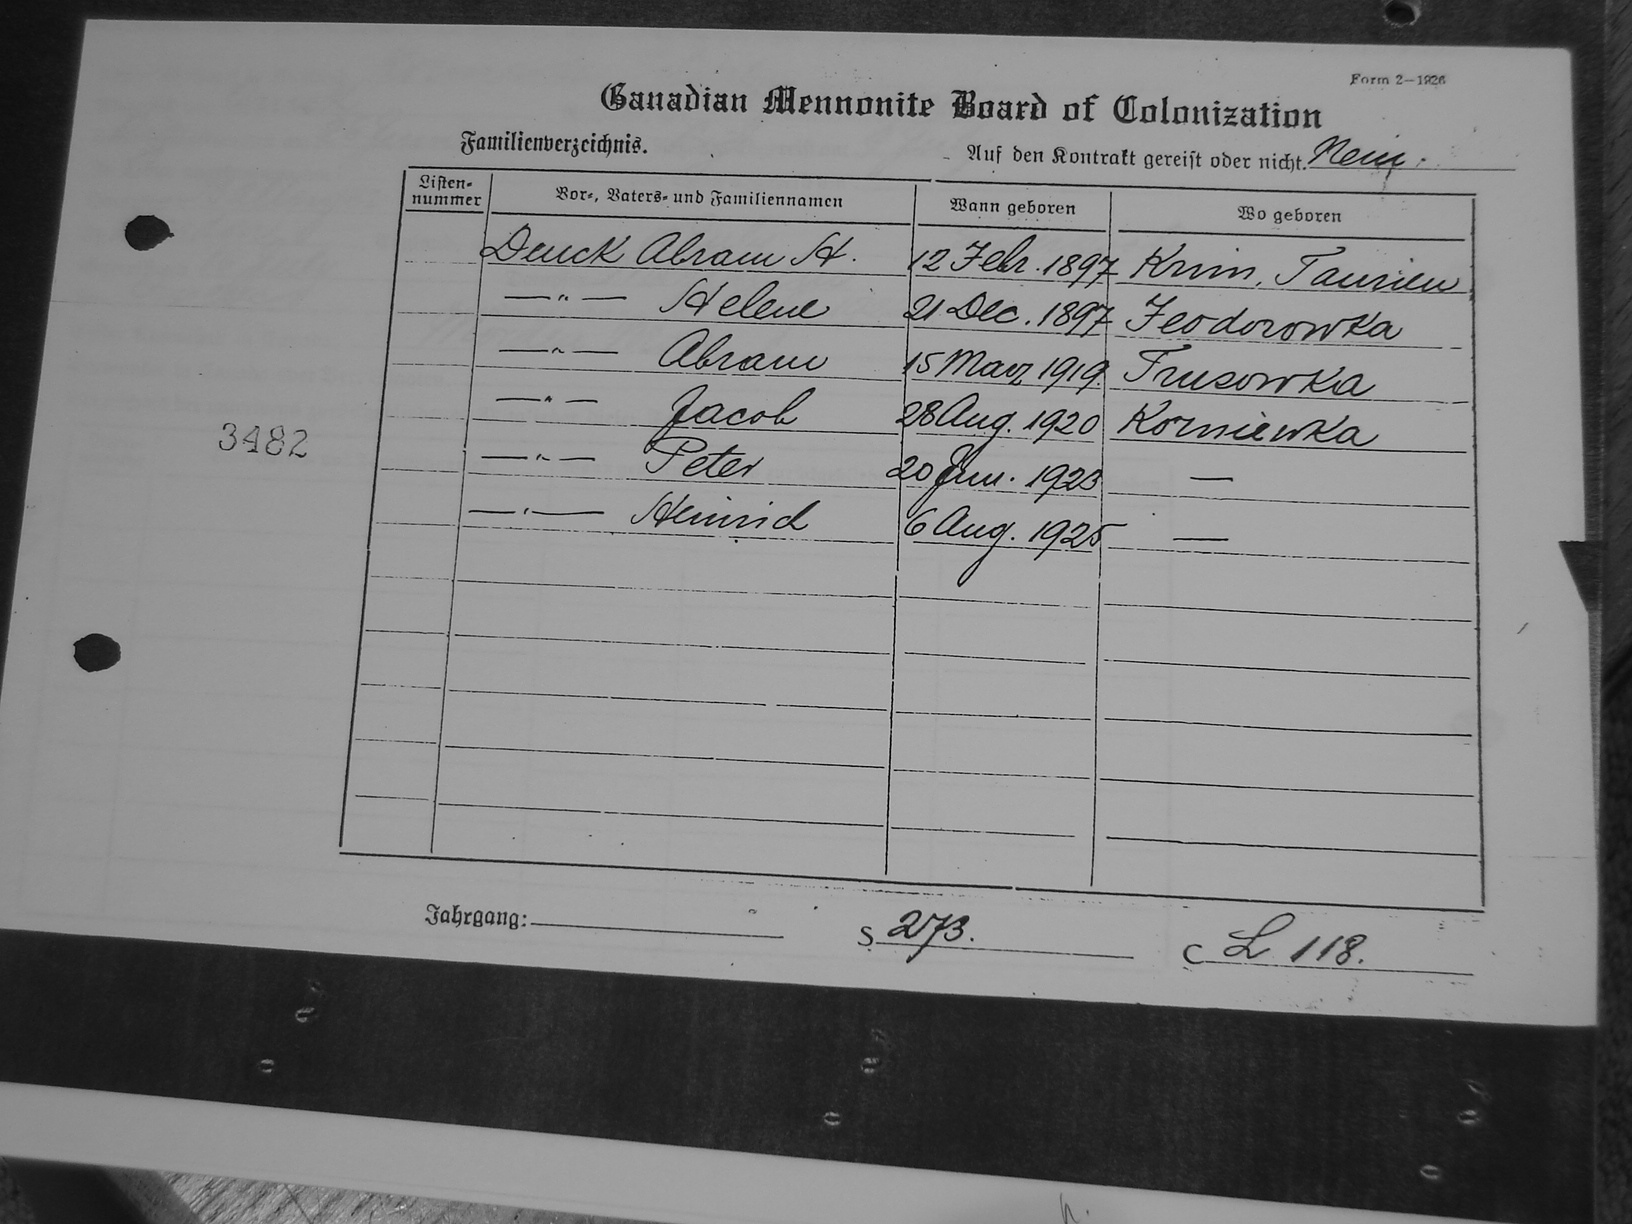 Form 2—1926
Canadian Mennonite Board of Colonization
Familienverzeichnis. Auf den Kontrakt gereist oder nicht. Nein.
Listen-nummer Vor-, Vaters- und Familiennamen Wann geboren Wo geboren
Dueck Abram H. 12 Febr. 1897 Krim, Taurien
—"— Helene 21 Dec. 1897 Feodorowka
—"— Abram 15 Marz 1919 Trusowka
—"— Jacob 28 Aug. 1920 Korniewka
3482
—"— Peter 20 Jun. 1923 —
—"— Heinrich 6 Aug. 1925 —
Jahrgang: S 273. C L 118.